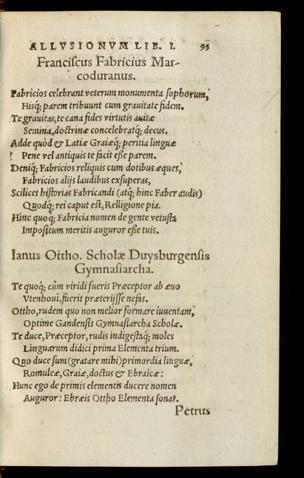 ALLVSIONVM LIB. I. 95
Franciscus Fabricius Mar-
coduranus.
Fabricios celebrant veterum monumenta sophorum,
Hisq; parem tribuunt cum grauitate fidem.
Te grauitas, te cana fides virtutis auitæ
Semina, doctrinæ concelebratq; decus.
Adde quòd & Latiæ Graiæq; peritia linguæ
Pene vel antiquis te facit esse parem.
Deniq; Fabricios reliquis cum dotibus æques,
Fabricios alijs laudibus exsuperas,
Scilicet historias Fabricandi (atq; hinc Faber audis)
Quodq; rei caput est, Relligione pia.
Hinc quoq; Fabricia nomen de gente vetusta
Impositum meritis auguror esse tuis.
Ianus Ottho. Scholæ Duysburgensis
Gymnasiarcha.
Te quoq; cùm viridi sueris Præceptor ab æuo
Vtenhoui, fuerit præterijsse nefas.
Ottho, rudem quo non melior formare iuuentam,
Optime Gandensis Gymnasiarcha Scholæ.
Te duce, Præceptor, rudis indigestaq; moles
Linguarum didici prima Elementa trium.
Quo duce sum (gratare mihi) primordia linguæ,
Romuleæ, Graiæ, doctus & Ebraicæ:
Hunc ego de primis elementis ducere nomen
Auguror: Ebræis Ottho Elementa sonat.
Petrus